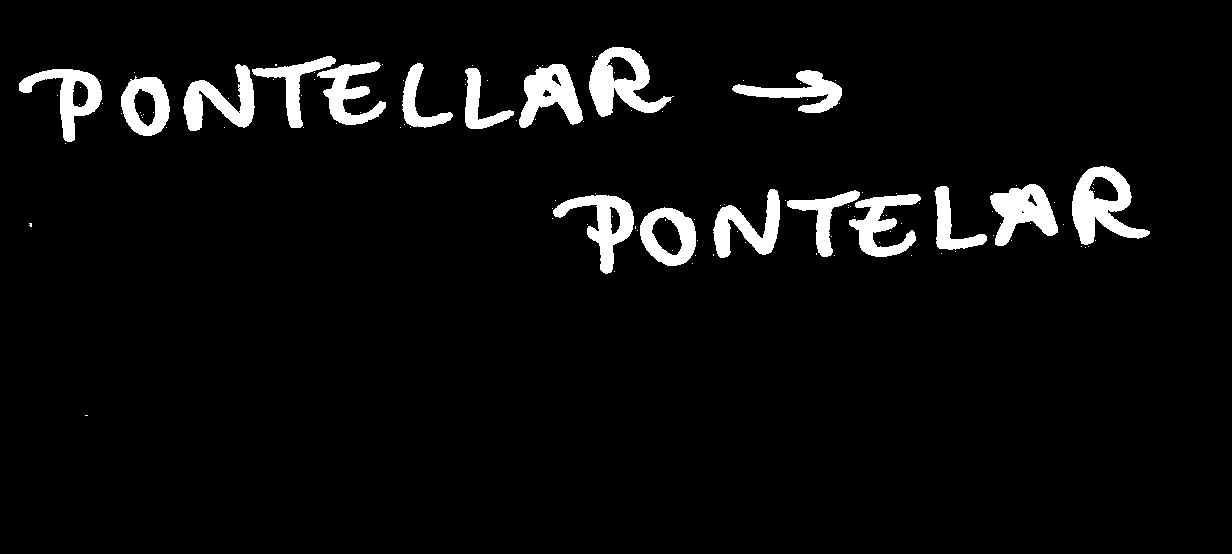 PONTELLAR →
PONTELAR